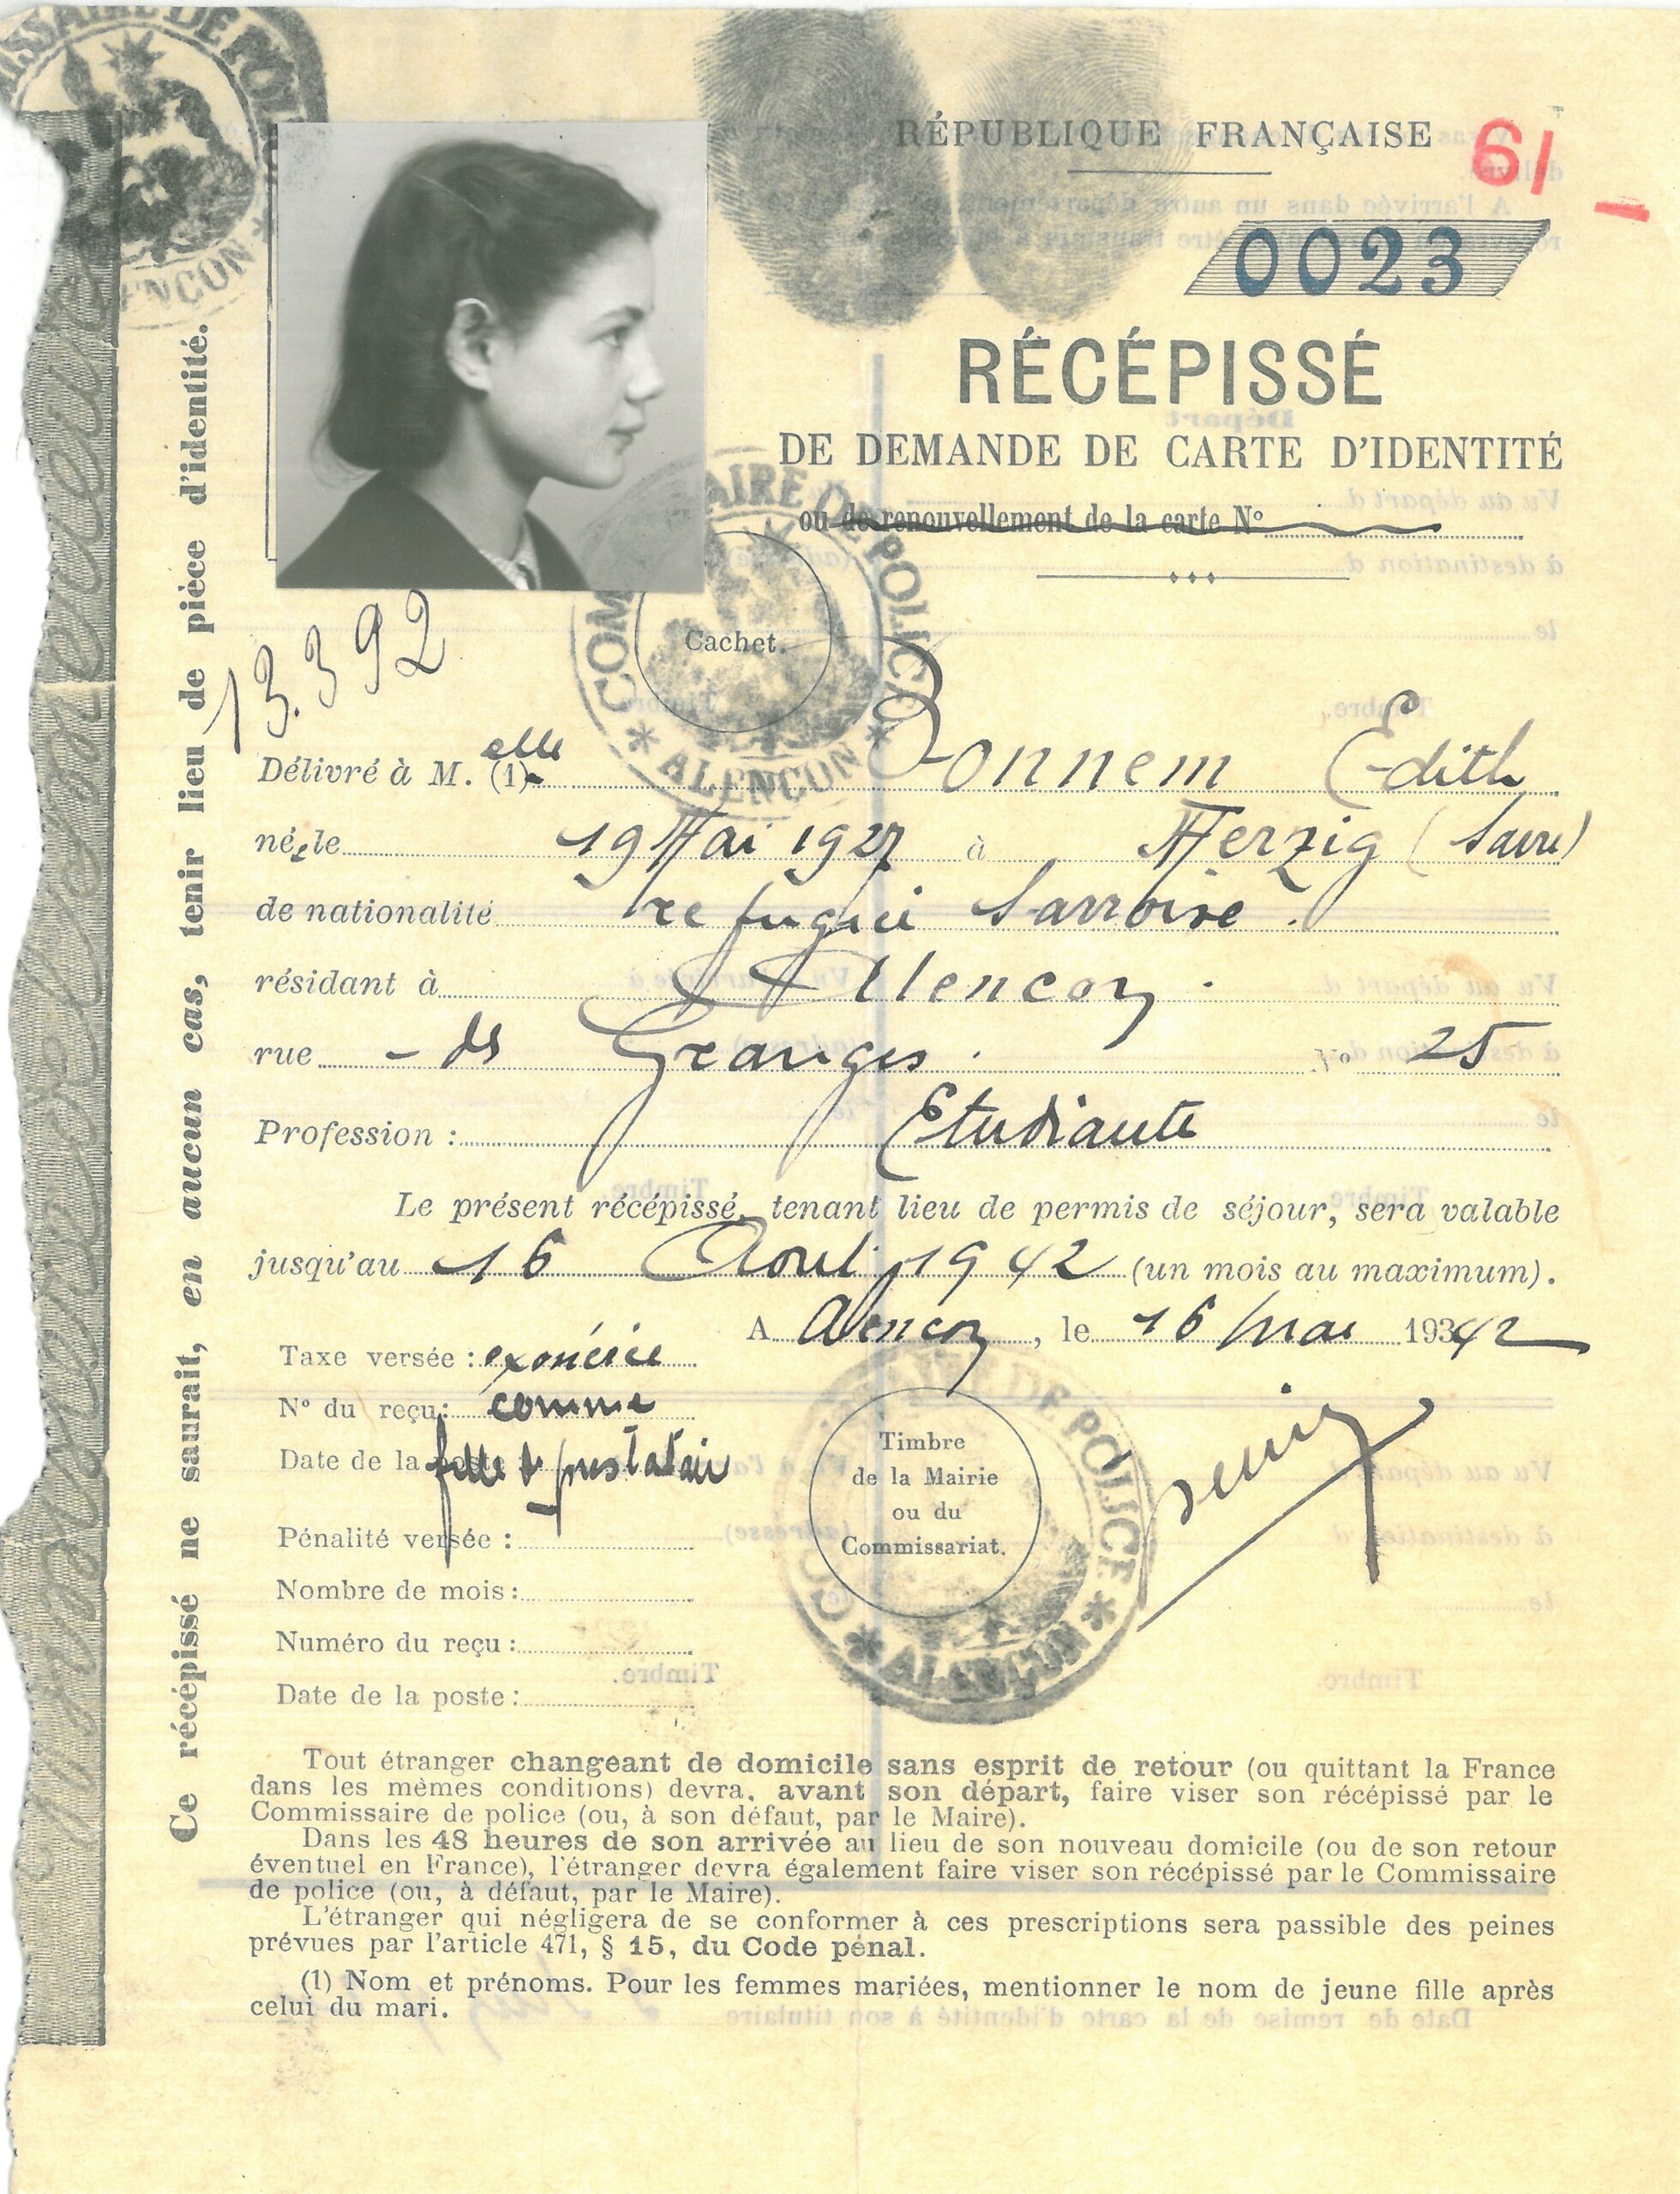 COMMISSAIRE DE POLICE
ALENÇON
RÉPUBLIQUE FRANÇAISE
61
0023
RÉCÉPISSÉ
DE DEMANDE DE CARTE D'IDENTITÉ
ou de renouvellement de la carte N°
Cachet.
COMMISSAIRE DE POLICE
* ALENÇON *
13.392
Délivré à M. (1) elle Bonnem Edith
née le 19 Mai 1927 à Merzig (Sarre)
de nationalité refugiée Sarroise.
résidant à Alencon.
rue - des Granges. N° 25
Profession : Etudiante
Le présent récépissé, tenant lieu de permis de séjour, sera valable
jusqu'au 16 Aout 1942 (un mois au maximum).
A Alencon, le 16 Mai 19342
Taxe versée : exonérée
N° du reçu : comme
Date de la poste fille de prestataire
Pénalité versée :
Nombre de mois :
Numéro du reçu :
Date de la poste :
Timbre
de la Mairie
ou du
Commissariat.
COMMISSAIRE DE POLICE
* ALENÇON *
Tout étranger changeant de domicile sans esprit de retour (ou quittant la France
dans les mêmes conditions) devra, avant son départ, faire viser son récépissé par le
Commissaire de police (ou, à son défaut, par le Maire).
Dans les 48 heures de son arrivée au lieu de son nouveau domicile (ou de son retour
éventuel en France), l'étranger devra également faire viser son récépissé par le Commissaire
de police (ou, à défaut, par le Maire).
L'étranger qui négligera de se conformer à ces prescriptions sera passible des peines
prévues par l'article 471, § 15, du Code pénal.
(1) Nom et prénoms. Pour les femmes mariées, mentionner le nom de jeune fille après
celui du mari.
Ce récépissé ne saurait, en aucun cas, tenir lieu de pièce d'identité.